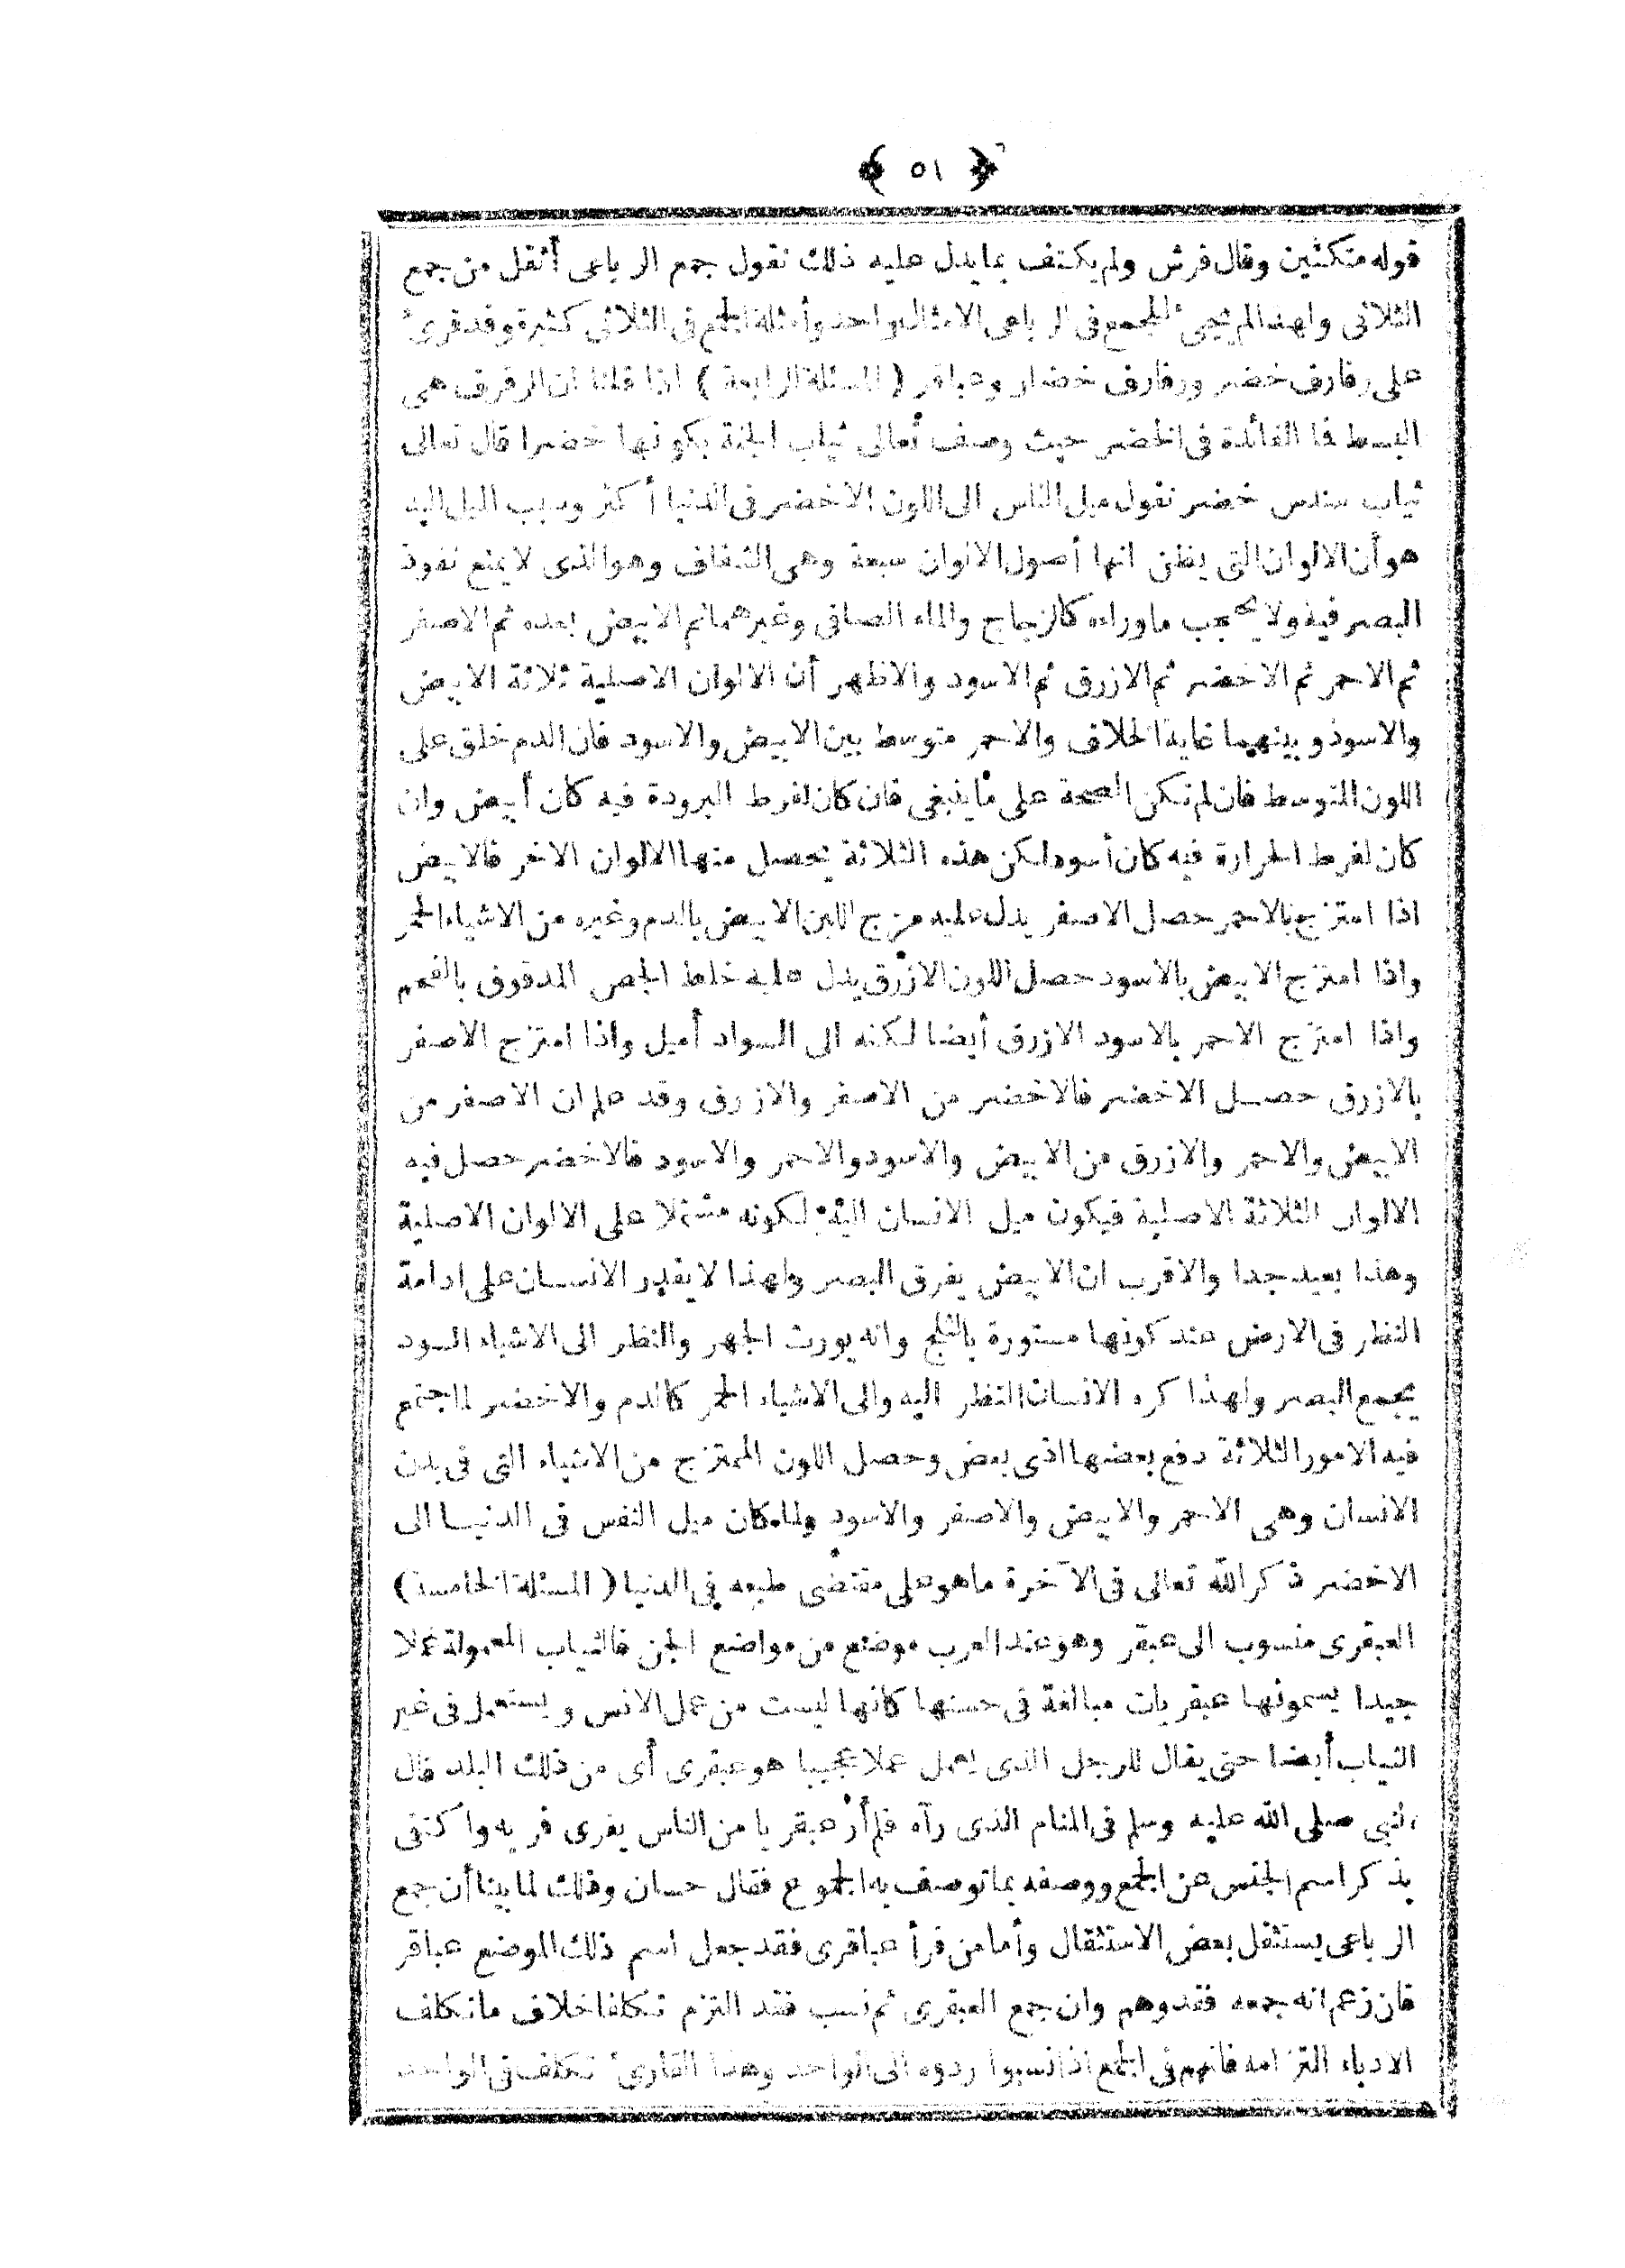 ﴿ ٥١ ﴾
قوله متكئين وقال فرش ولم يكتف بما يدل عليه ذلك نقول جمع الرباعى أثقل من جمع
الثلاثى ولهذا لم يجىء للجمع فى الرباعى الامثال واحد وأمثلة الجمع فى الثلاثى كثيرة وقد قرىء
على رفارف خضر ورفارف خضار وعباقر (المسئلة الرابعة) اذا قلنا ان الرفرف هى
البسط فما الفائدة فى الخضر حيث وصف تعالى ثياب الجنة بكونها خضرا قال تعالى
ثياب سندس خضر نقول ميل الناس الى اللون الاخضر فى الدنيا أكثر وسبب الميل اليه
هو أن الالوان التى يظن انها أصول الالوان سبعة وهى الشفاف وهو الذى لا يمنع نفوذ
البصر فيه ولا يحجب ما وراءه كالزجاج والماء الصافى وغيرهما ثم الابيض بعده ثم الاصفر
ثم الاحمر ثم الاخضر ثم الازرق ثم الاسود والاظهر أن الالوان الاصلية ثلاثة الابيض
والاسود وبينهما غاية الخلاف والاحمر متوسط بين الابيض والاسود فان الدم خلق على
اللون المتوسط فان لم تكن الصحة على ما ينبغى فان كان لفرط البرودة فيه كان أبيض وان
كان لفرط الحرارة فيه كان أسود لكن هذه الثلاثة يحصل منها الالوان الاخر فالابيض
اذا امتزج بالاحمر حصل الاصفر يدل عليه مزج اللبن الابيض بالدم وغيره من الاشياء الحمر
واذا امتزج الابيض بالاسود حصل اللون الازرق يدل عليه خلط الجص المدقوق بالفحم
واذا امتزج الاحمر بالاسود الازرق أيضا لكنه الى السواد أميل واذا امتزج الاصفر
بالازرق حصل الاخضر فالاخضر من الاصفر والازرق وقد علم ان الاصفر من
الابيض والاحمر والازرق من الابيض والاسود والاحمر والاسود فالاخضر حصل فيه
الالوان الثلاثة الاصلية فيكون ميل الانسان اليه لكونه مشتملا على الالوان الاصلية
وهذا بعيد جدا والاقرب ان الابيض يفرق البصر ولهذا لا يقدر الانسان على ادامة
النظر فى الارض عند كونها مستورة بالثلج وانه يورث الجهر والنظر الى الاشياء السود
يجمع البصر ولهذا كره الانسان النظر اليه والى الاشياء الحمر كالدم والاخضر لما اجتمع
فيه الامور الثلاثة دفع بعضها اذى بعض وحصل اللون الممتزج من الاشياء التى فى بدن
الانسان وهى الاحمر والابيض والاصفر والاسود ولما كان ميل النفس فى الدنيا الى
الاخضر ذكر الله تعالى فى الآخرة ما هو على مقتضى طبعه فى الدنيا (المسئلة الخامسة)
العبقرى منسوب الى عبقر وهو عند العرب موضع من مواضع الجن فالثياب المعمولة عملا
جيدا يسمونها عبقريات مبالغة فى حسنها كانها ليست من عمل الانس ويستعمل فى غير
الثياب أيضا حتى يقال للرجل الذى يعمل عملا عجيبا هو عبقرى أى من ذلك البلد قال
النبى صلى الله عليه وسلم فى المنام الذى رآه فلم أر عبقريا من الناس يفرى فريه واكتفى
بذكر اسم الجنس عن الجمع ووصفه بما توصف به الجموع فقال حسان وذلك لما بينا أن جمع
الرباعى يستثقل بعض الاستثقال وأما من قرأ عباقرى فقد جعل اسم ذلك الموضع عباقر
فان زعم انه جمعه فقد وهم وان جمع العبقرى ثم نسب فقد التزم تكلفا خلاف ما تكلف
الادباء التزامه فانهم فى الجمع اذا نسبوا ردوه الى الواحد وهذا القارىء تكلف فى الواحد